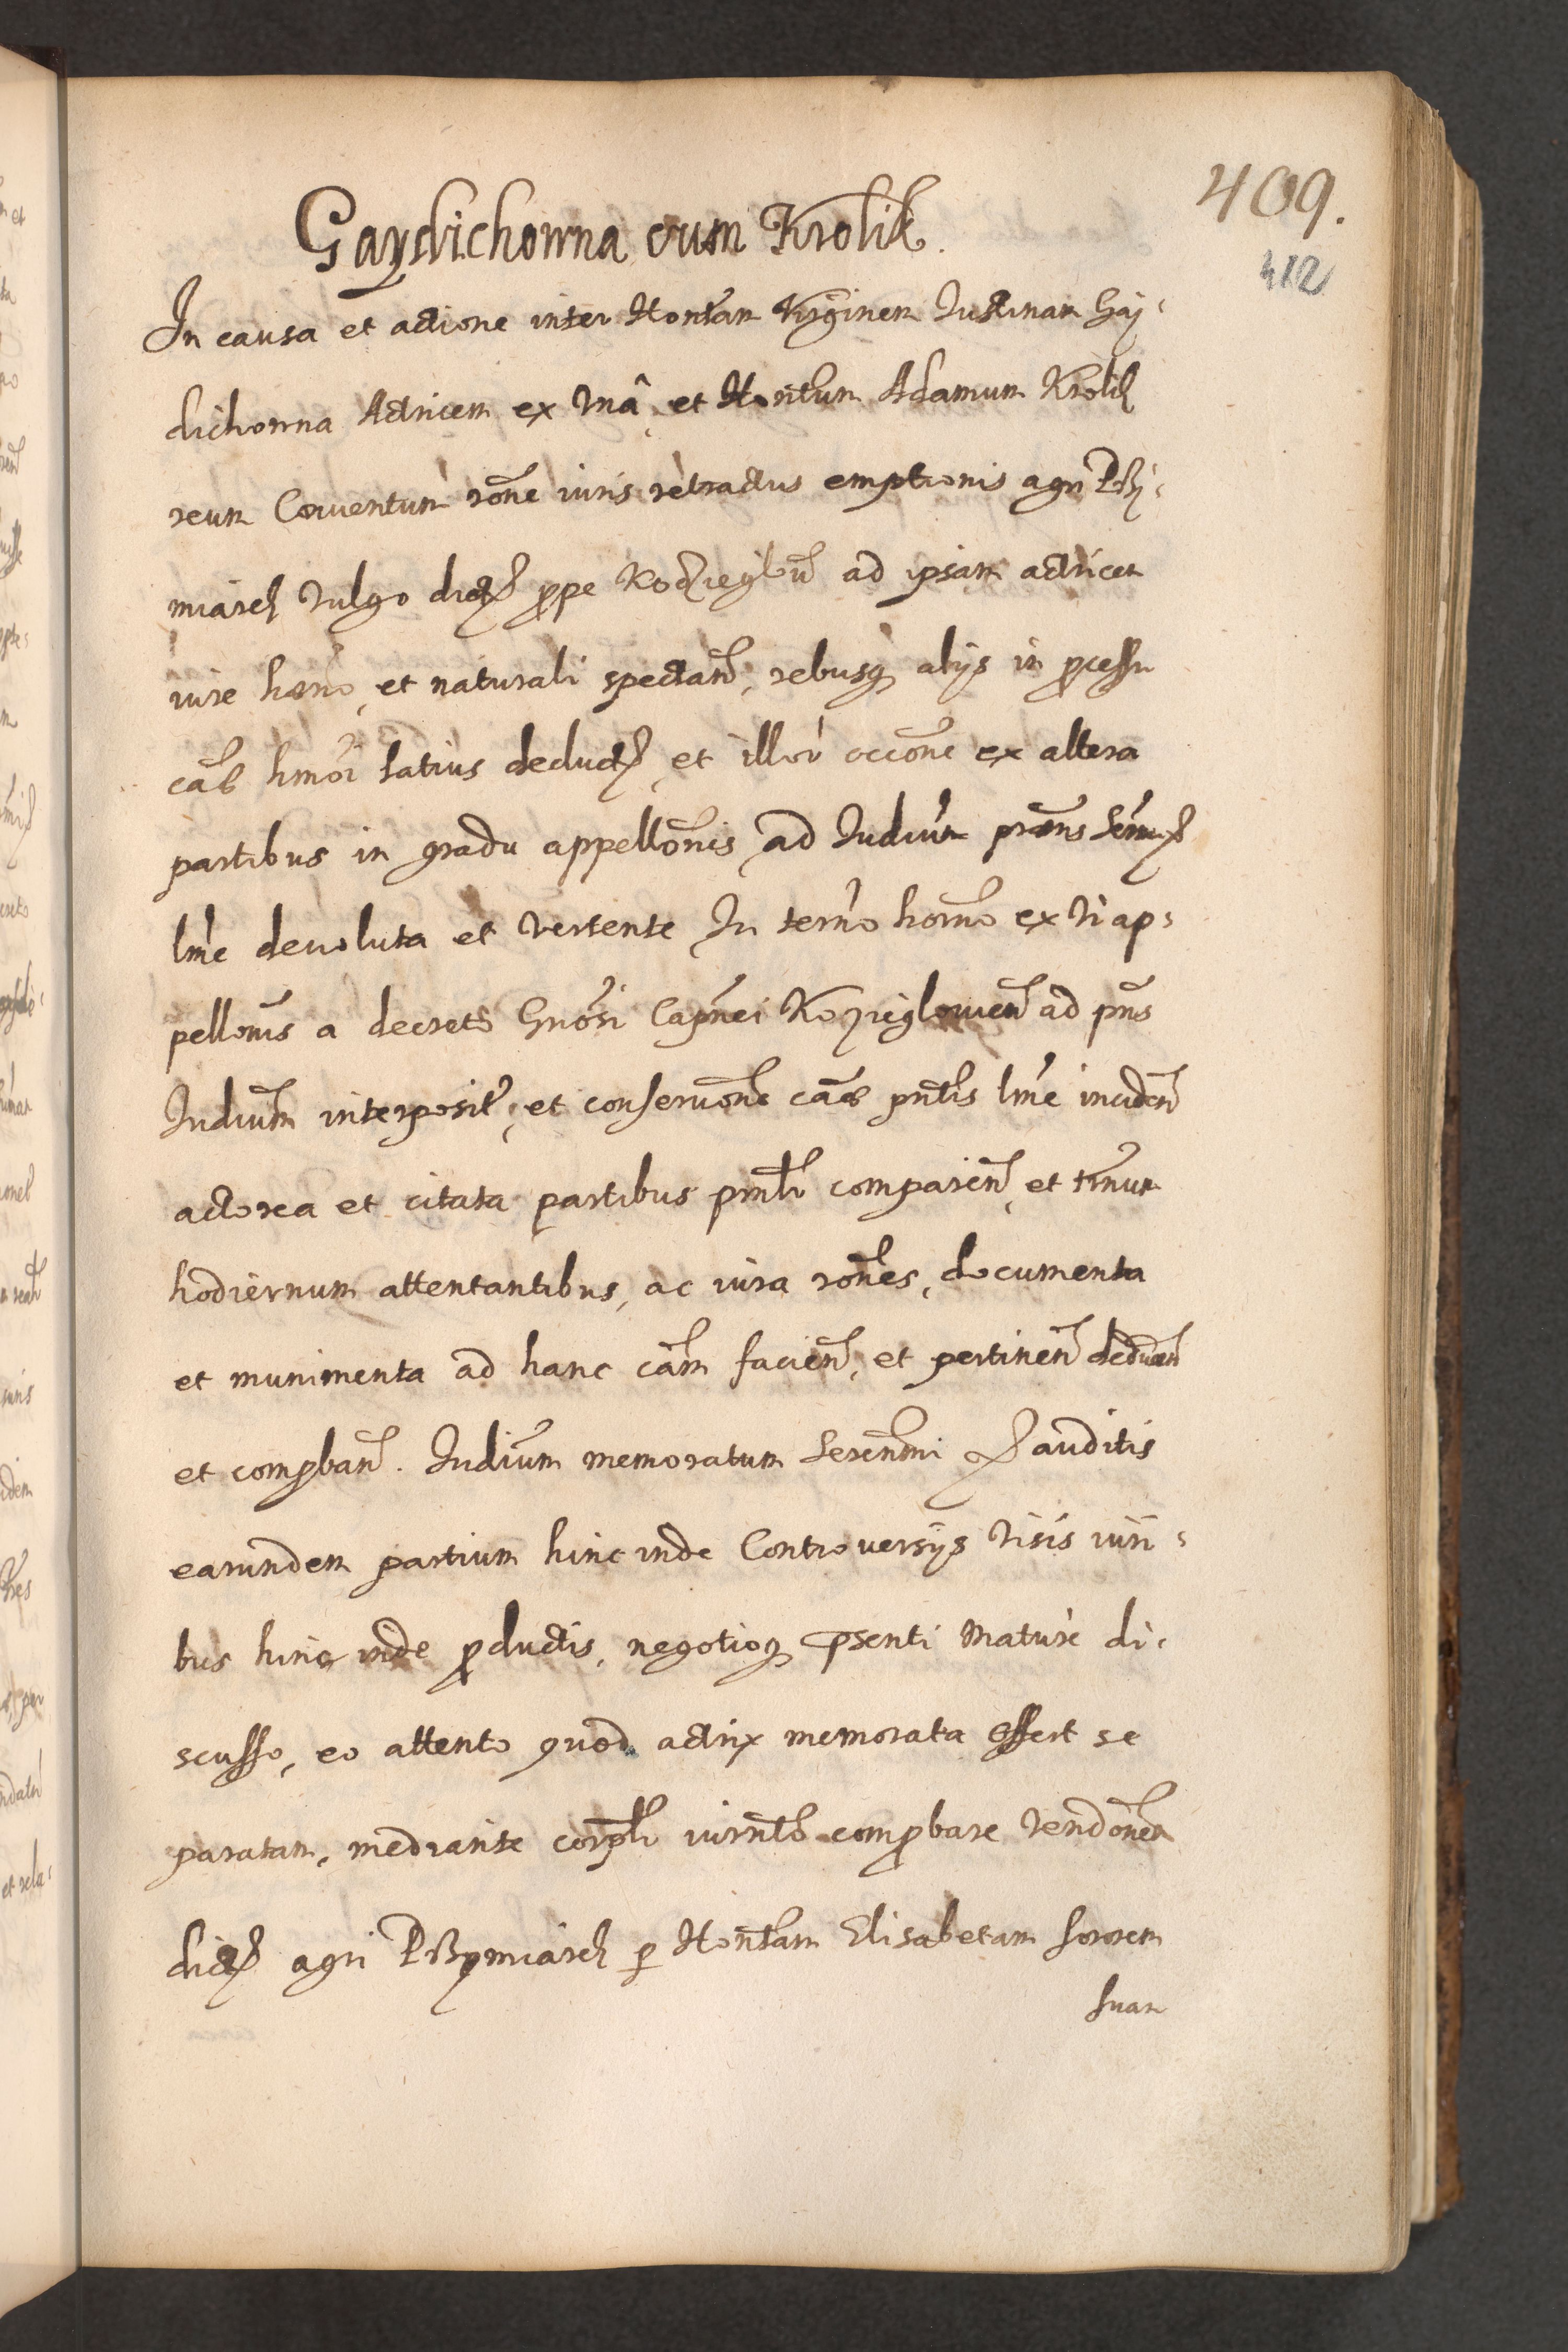 409.
412
Gaydichowna cum Krolik.
In causa et actione inter Hontam Virginem Justinam Gaj-
dichowna Actricem ex vnâ, et Hontum Adamum Krolik
reum Conventum rone iuris retractus emptionis agri Przy-
miarek vulgo dict prope Koziegł ad ipsam actricem
iure haerio, et naturali spectan, rebusq alijs in pcessu
cas hmoi latius deduct, et illor occone ex altera
partibus in gradu appellonis, ad Iudium praens Sermi
lme devoluta et vertente In termo horno ex vi ap-
pellonis a decreto Gnosi Capnei Kozieglowien ad pns
Iudium interposit, et conservone cas pntis lme inciden
actorea et citata partibus pmlr comparen, et trnum
hodiernum attentantibus, ac iura rones, documenta
et munimenta ad hanc cam facien, et pertinen deducen
et compban. Iudium memoratum Serenmi auditis
earundem partium hinc inde Controversijs visis iuri-
bus hinc inde pductis, negotioq psenti mature di-
scusso, eo attento quod actrix memorata offert se
paratam, mediante corpli iurnto compbare vendonem
dict agri Przymiarek p Hontam Elisabetam sororem
suam